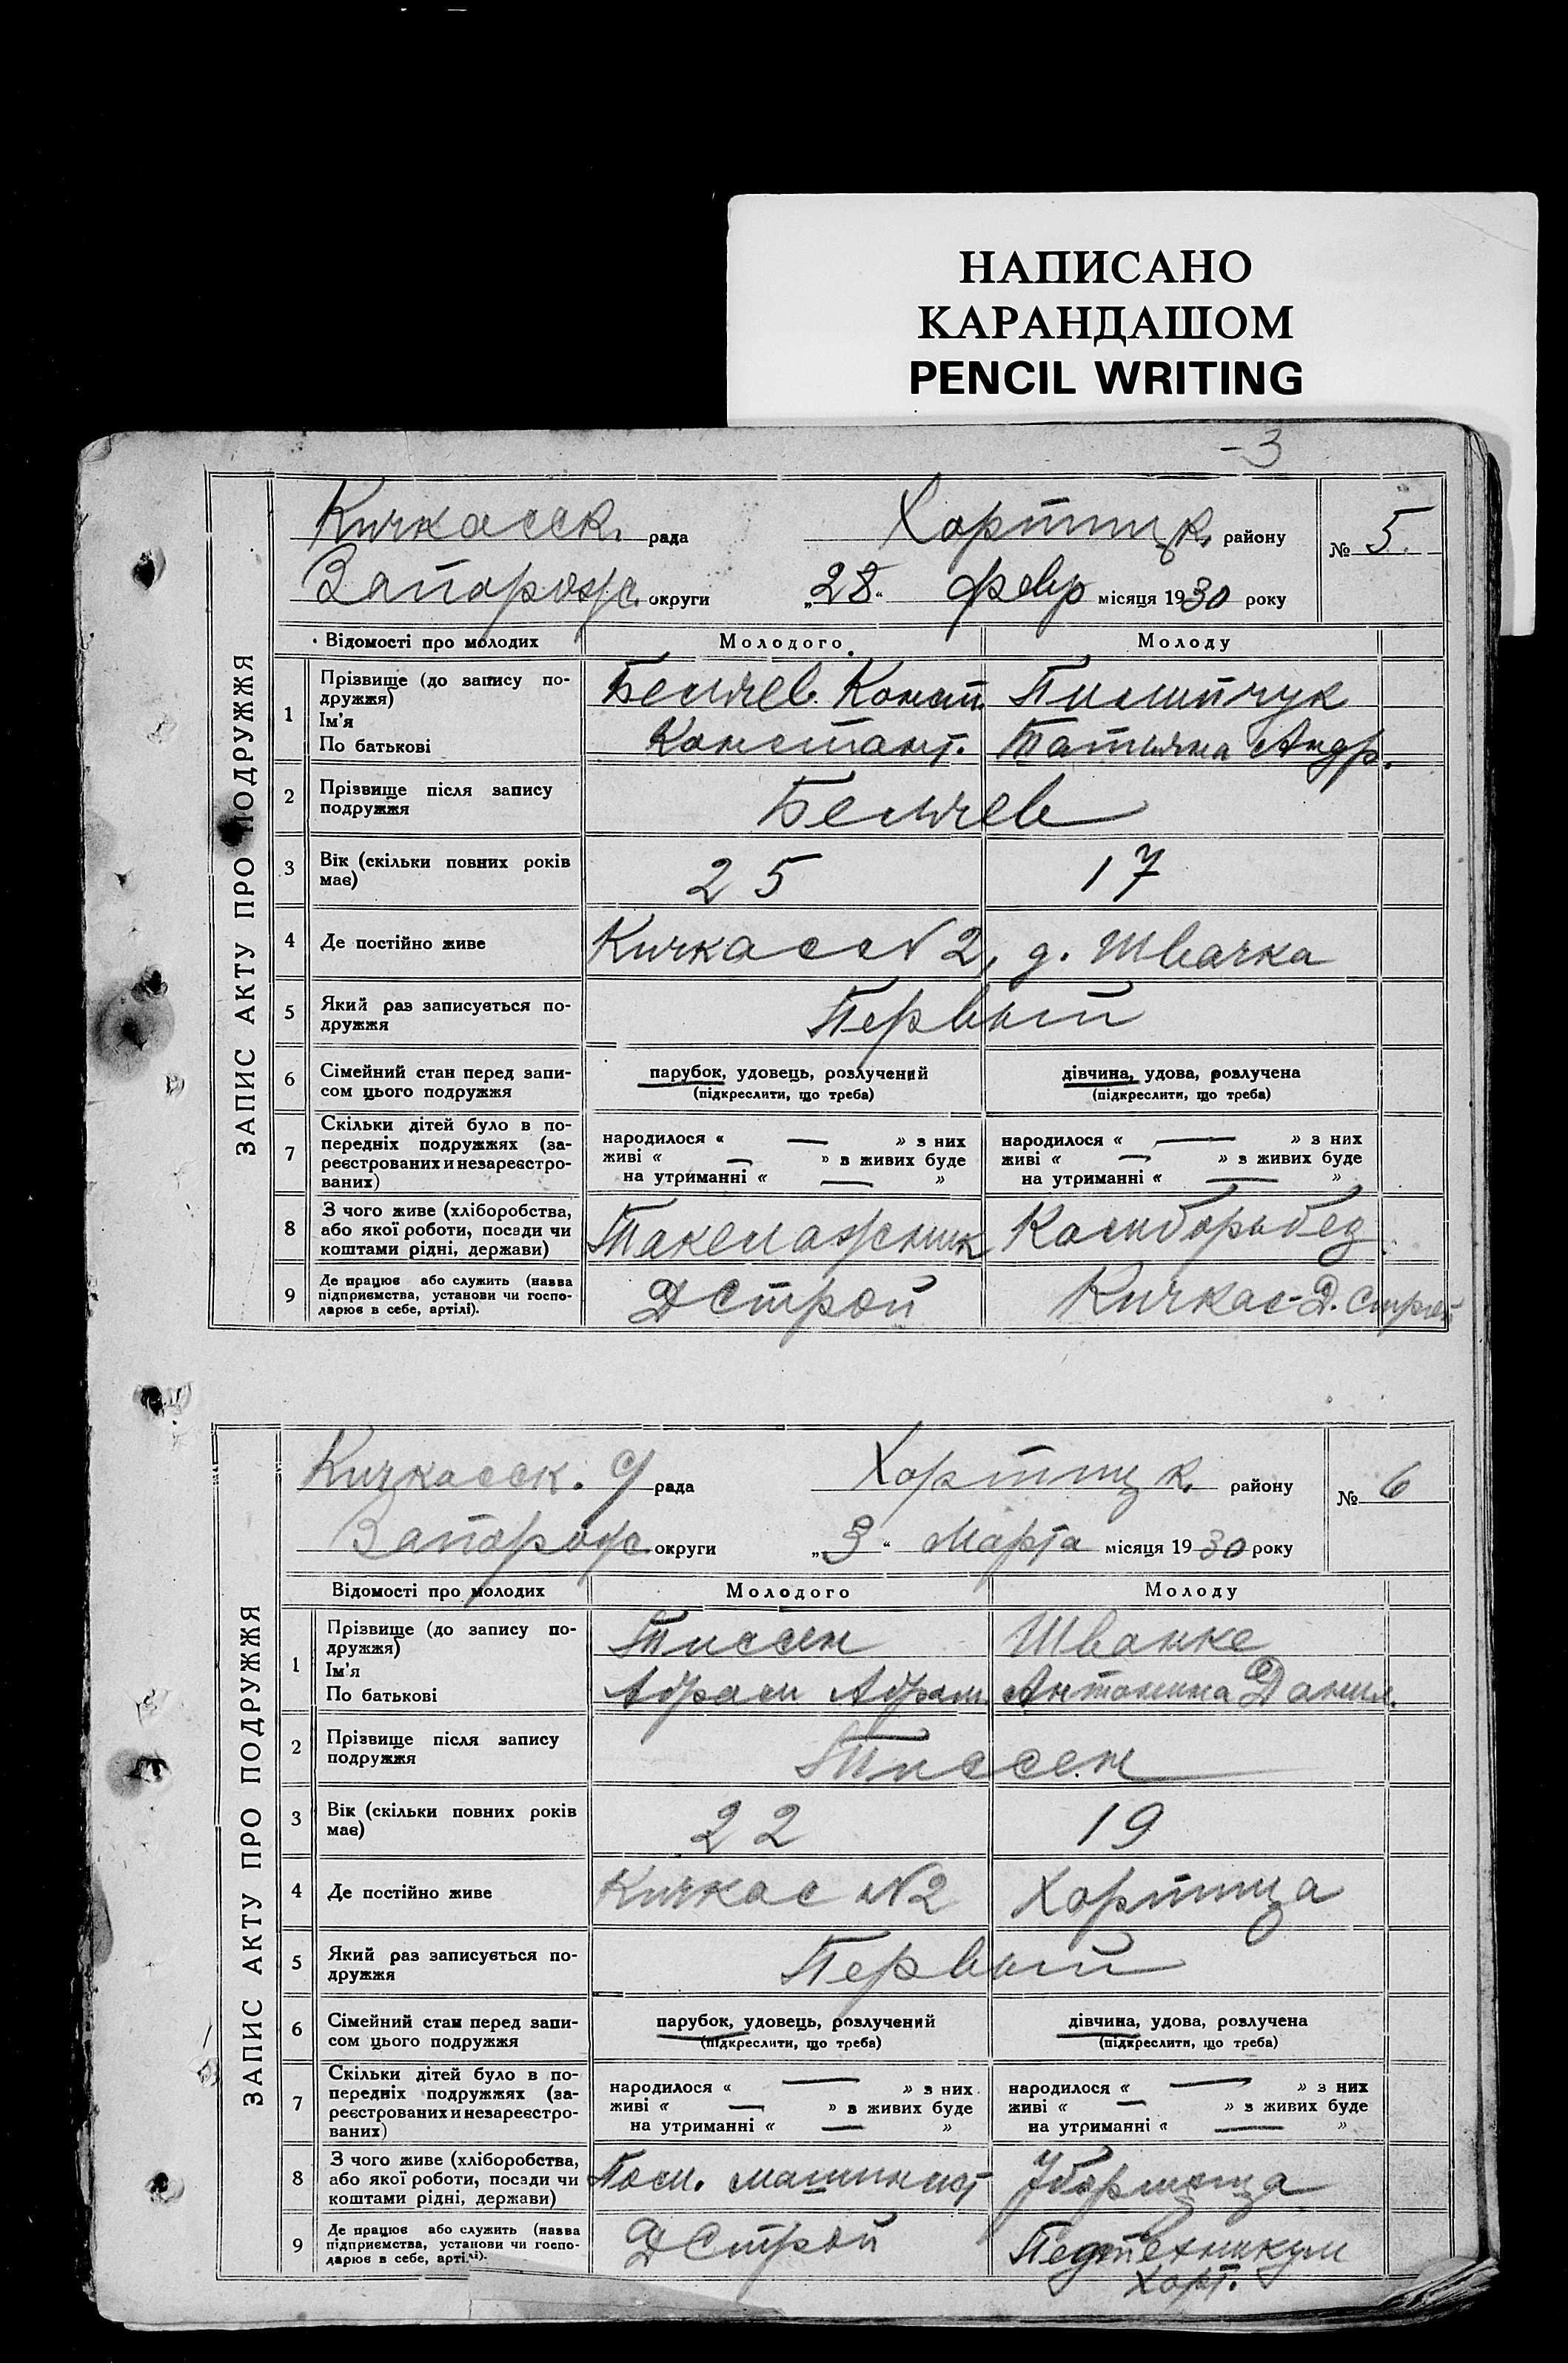 НАПИСАНО
КАРАНДАШОМ
PENCIL WRITING
-3
ЗАПИС АКТУ ПРО ПОДРУЖЖЯ
Кичкасск. рада Хортицк. району № 5.
Запорож. округи „28“ февр місяця 1930 року
Відомості про молодих Молодого Молоду
1 Прізвище (до запису по-
дружжя)
Ім'я
По батькові
Конст. Пилипчук
Констант. Татьяна Андр.
2 Прізвище після запису
подружжя
3 Вік (скільки повних років
має)
25 17
4 Де постійно живе Кичкасс N 2, д. Швачка
5 Який раз записується по-
дружжя
Первый
6 Сімейний стан перед запи-
сом цього подружжя
парубок, удовець, розлучений дівчина, удова, розлучена
(підкреслити, що треба) (підкреслити, що треба)
7 Скільки дітей було в по-
передніх подружжях (за-
реєстрованих и незареєстро-
ваних)
народилося « — » з них народилося « — » з них
живі « — » в живих буде живі « — » з живих буде
на утриманні « — » на утриманні « — »
8 З чого живе (хліборобства,
або якої роботи, посади чи
коштами рідні, держави)
Такелажник
9 Де працює або служить (назва
підприємства, установи чи госпо-
дарює в себе, артілі).
ДСтрой Кичкас-Д. Строй
ЗАПИС АКТУ ПРО ПОДРУЖЖЯ
Кичкасск. с/ рада Хортицк. району № 6
Запорож. округи „3“ Марта місяця 1930 року
Відомості про молодих Молодого Молоду
1 Прізвище (до запису по-
дружжя)
Ім'я
По батькові
Тиссен Шванке
Абрам Абрам. Антонина Данил.
2 Прізвище після запису
подружжя
Тиссен
3 Вік (скільки повних років
має)
22 19
4 Де постійно живе Кичкас N2 Хортица
5 Який раз записується по-
дружжя
Первый
6 Сімейний стан перед запи-
сом цього подружжя
парубок, удовець, розлучений дівчина, удова, розлучена
(підкреслити, що треба) (підкреслити, що треба)
7 Скільки дітей було в по-
передніх подружжях (за-
реєстрованих и незареєстро-
ваних)
народилося « — » з них народилося « — » з них
живі « — » в живих буде живі « — » з живих буде
на утриманні « — » на утриманні « — »
8 З чого живе (хліборобства,
або якої роботи, посади чи
коштами рідні, держави)
Пом. машинист Уборщица
9 Де працює або служить (назва
підприємства, установи чи госпо-
дарює в себе, артілі).
ДСтрой Педтехникум
Хорт.